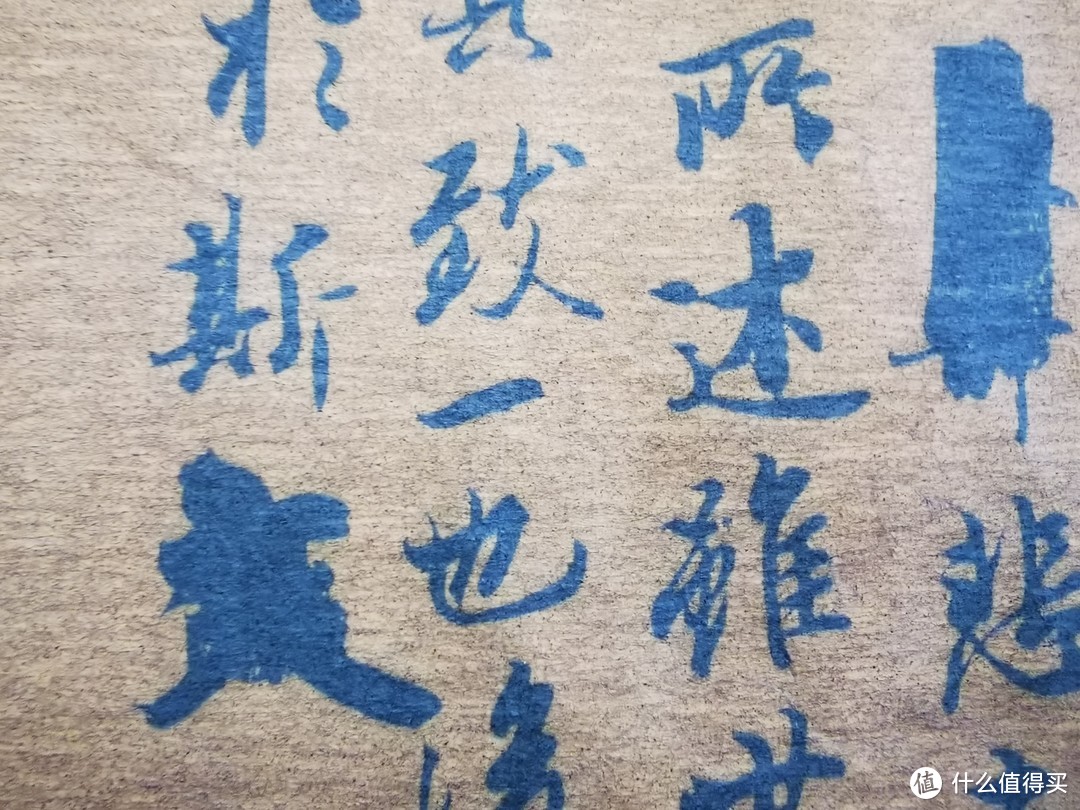 悲
所述雖世
其致一也後
於斯
什么值得买